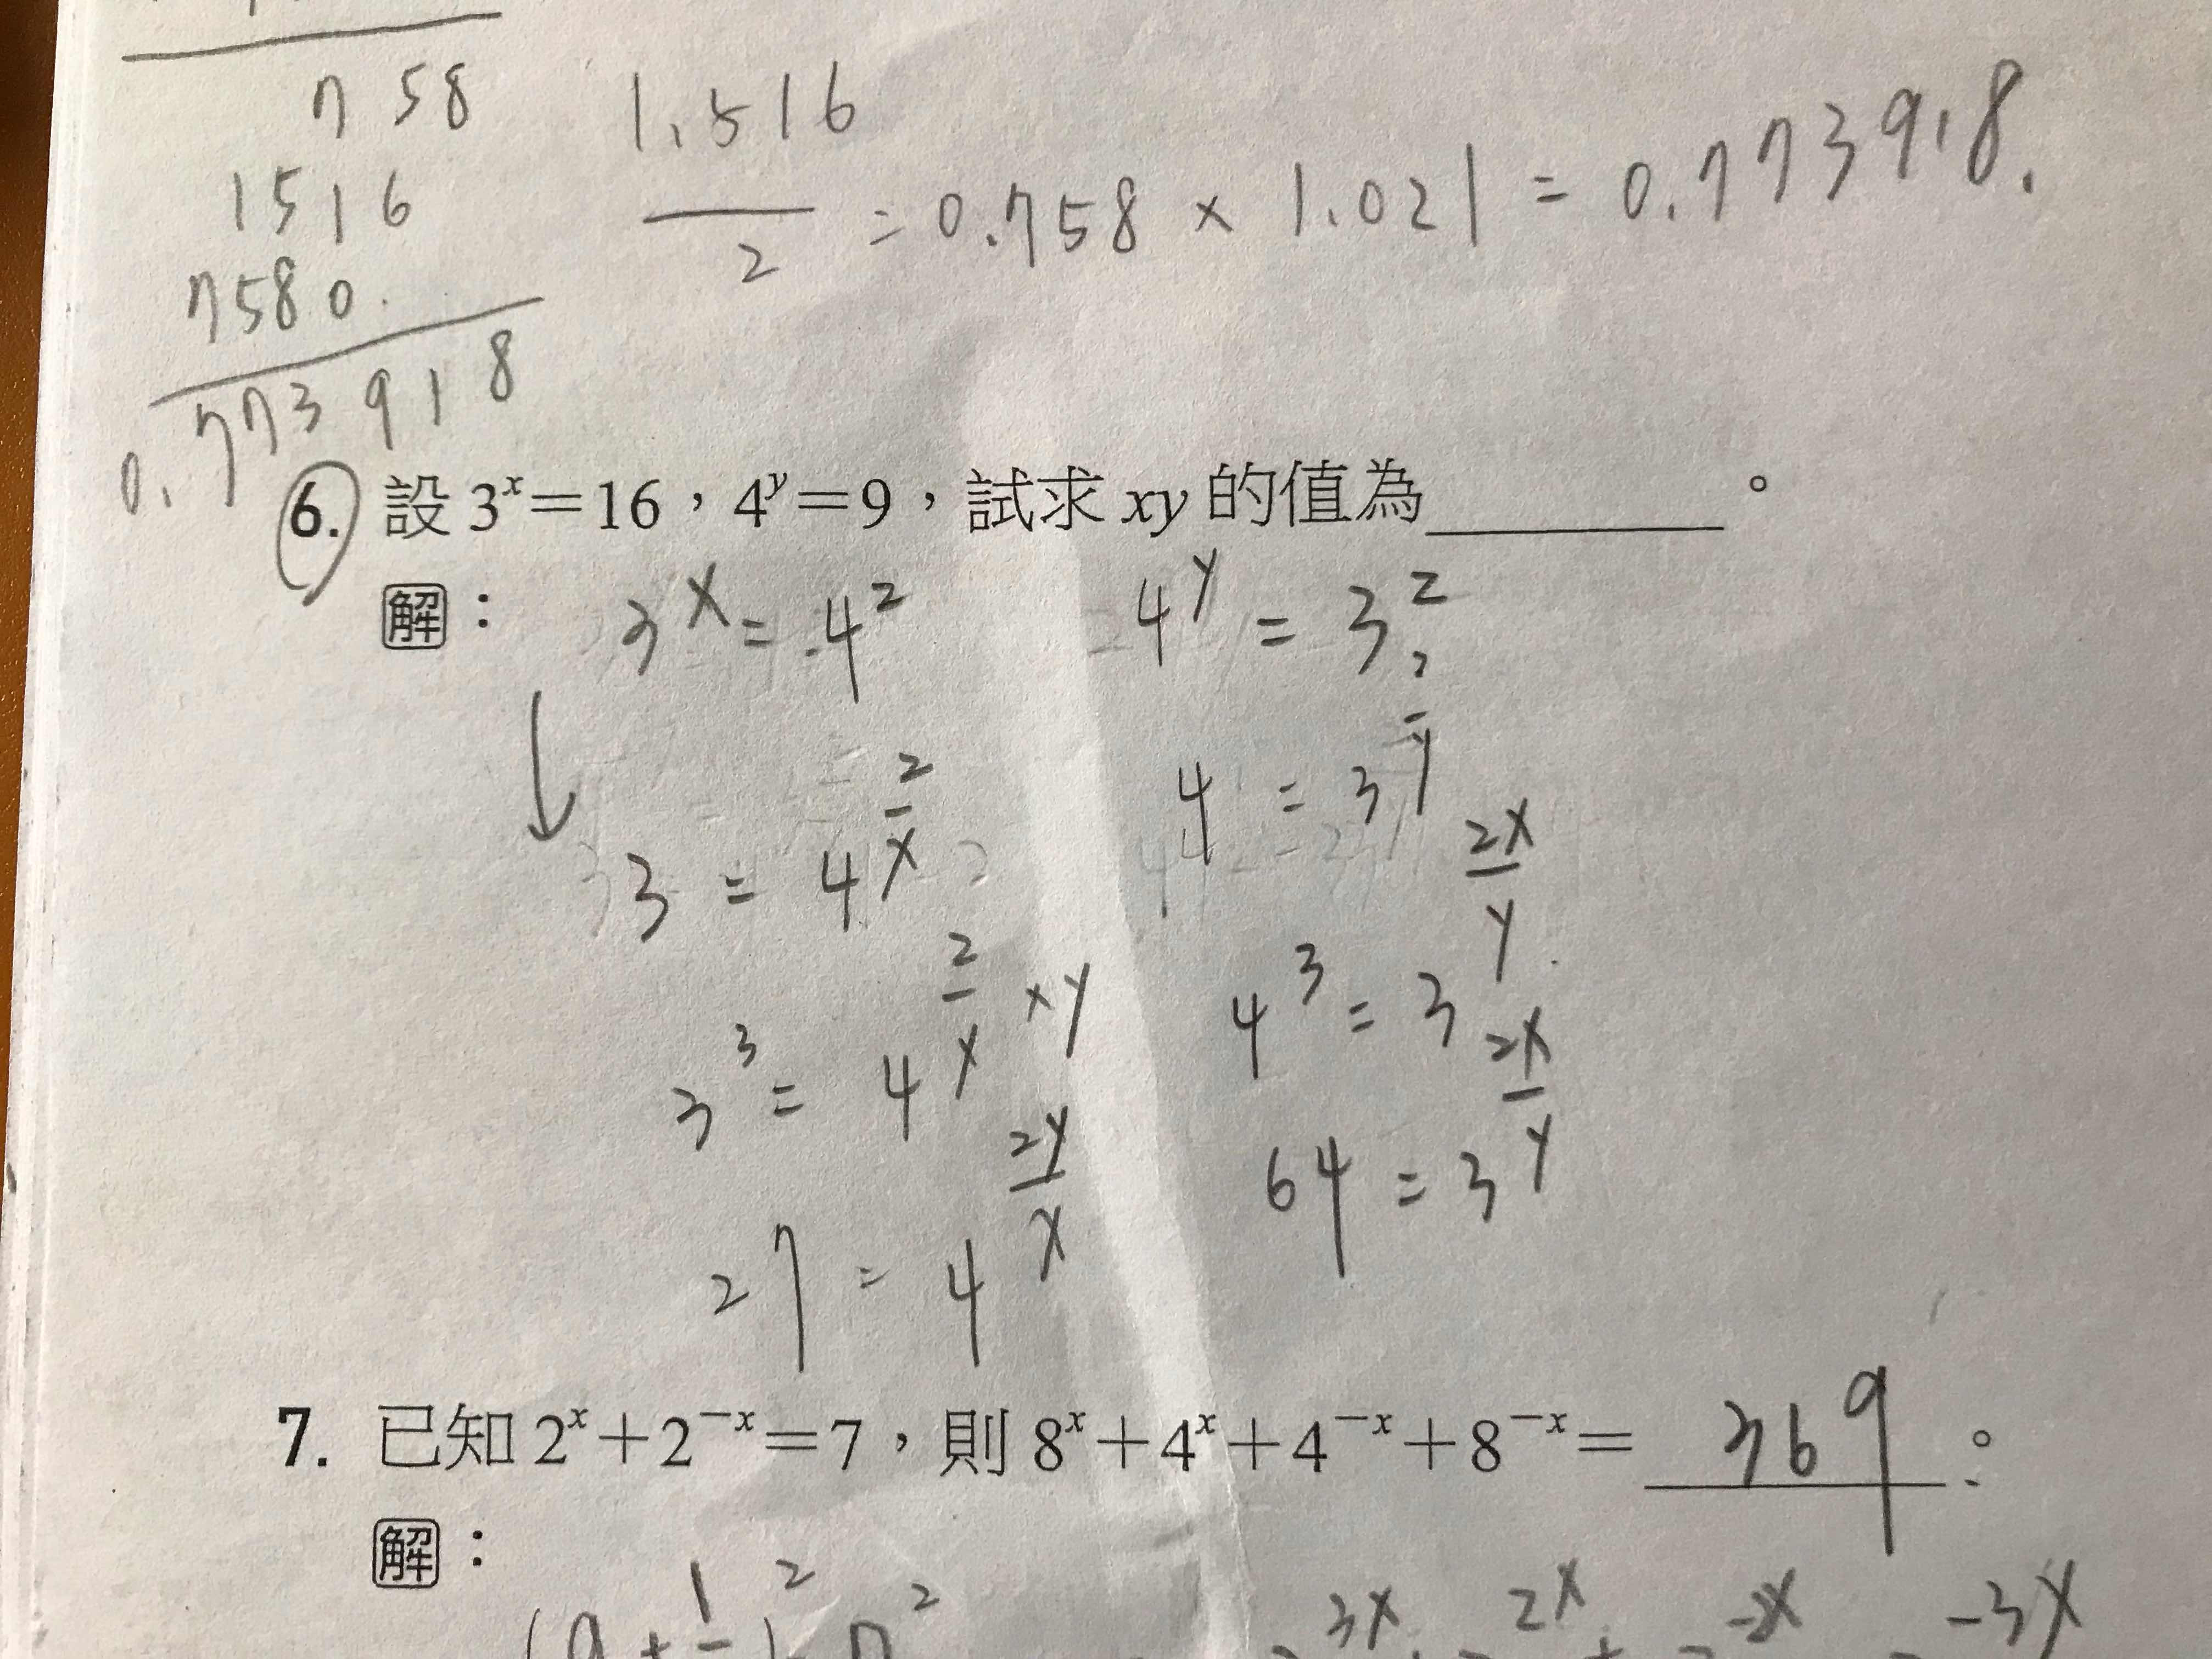 758
1516
7580
0.773918
1.516
2 = 0.758 × 1.021 = 0.773918.
6. 設 3^x=16，4^y=9，試求 xy 的值為________。
解： 3^x = 4^2 4^y = 3^2
3 = 4^(2/x) 4 = 3^(2/y)
3^3 = 4^(2/x × y) 4^3 = 3^(2x/y)
27 = 4^(2y/x) 64 = 3^(2x/y)
7. 已知 2^x+2^−x=7，則 8^x+4^x+4^−x+8^−x= 369 。
解：